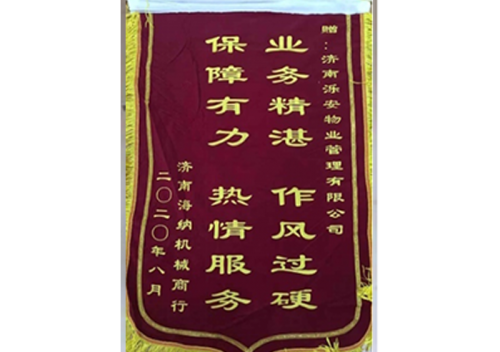 赠:济南泺安物业管理有限公司
业务精湛 作风过硬
保障有力 热情服务
济南海纳机械商行
二〇二〇年八月